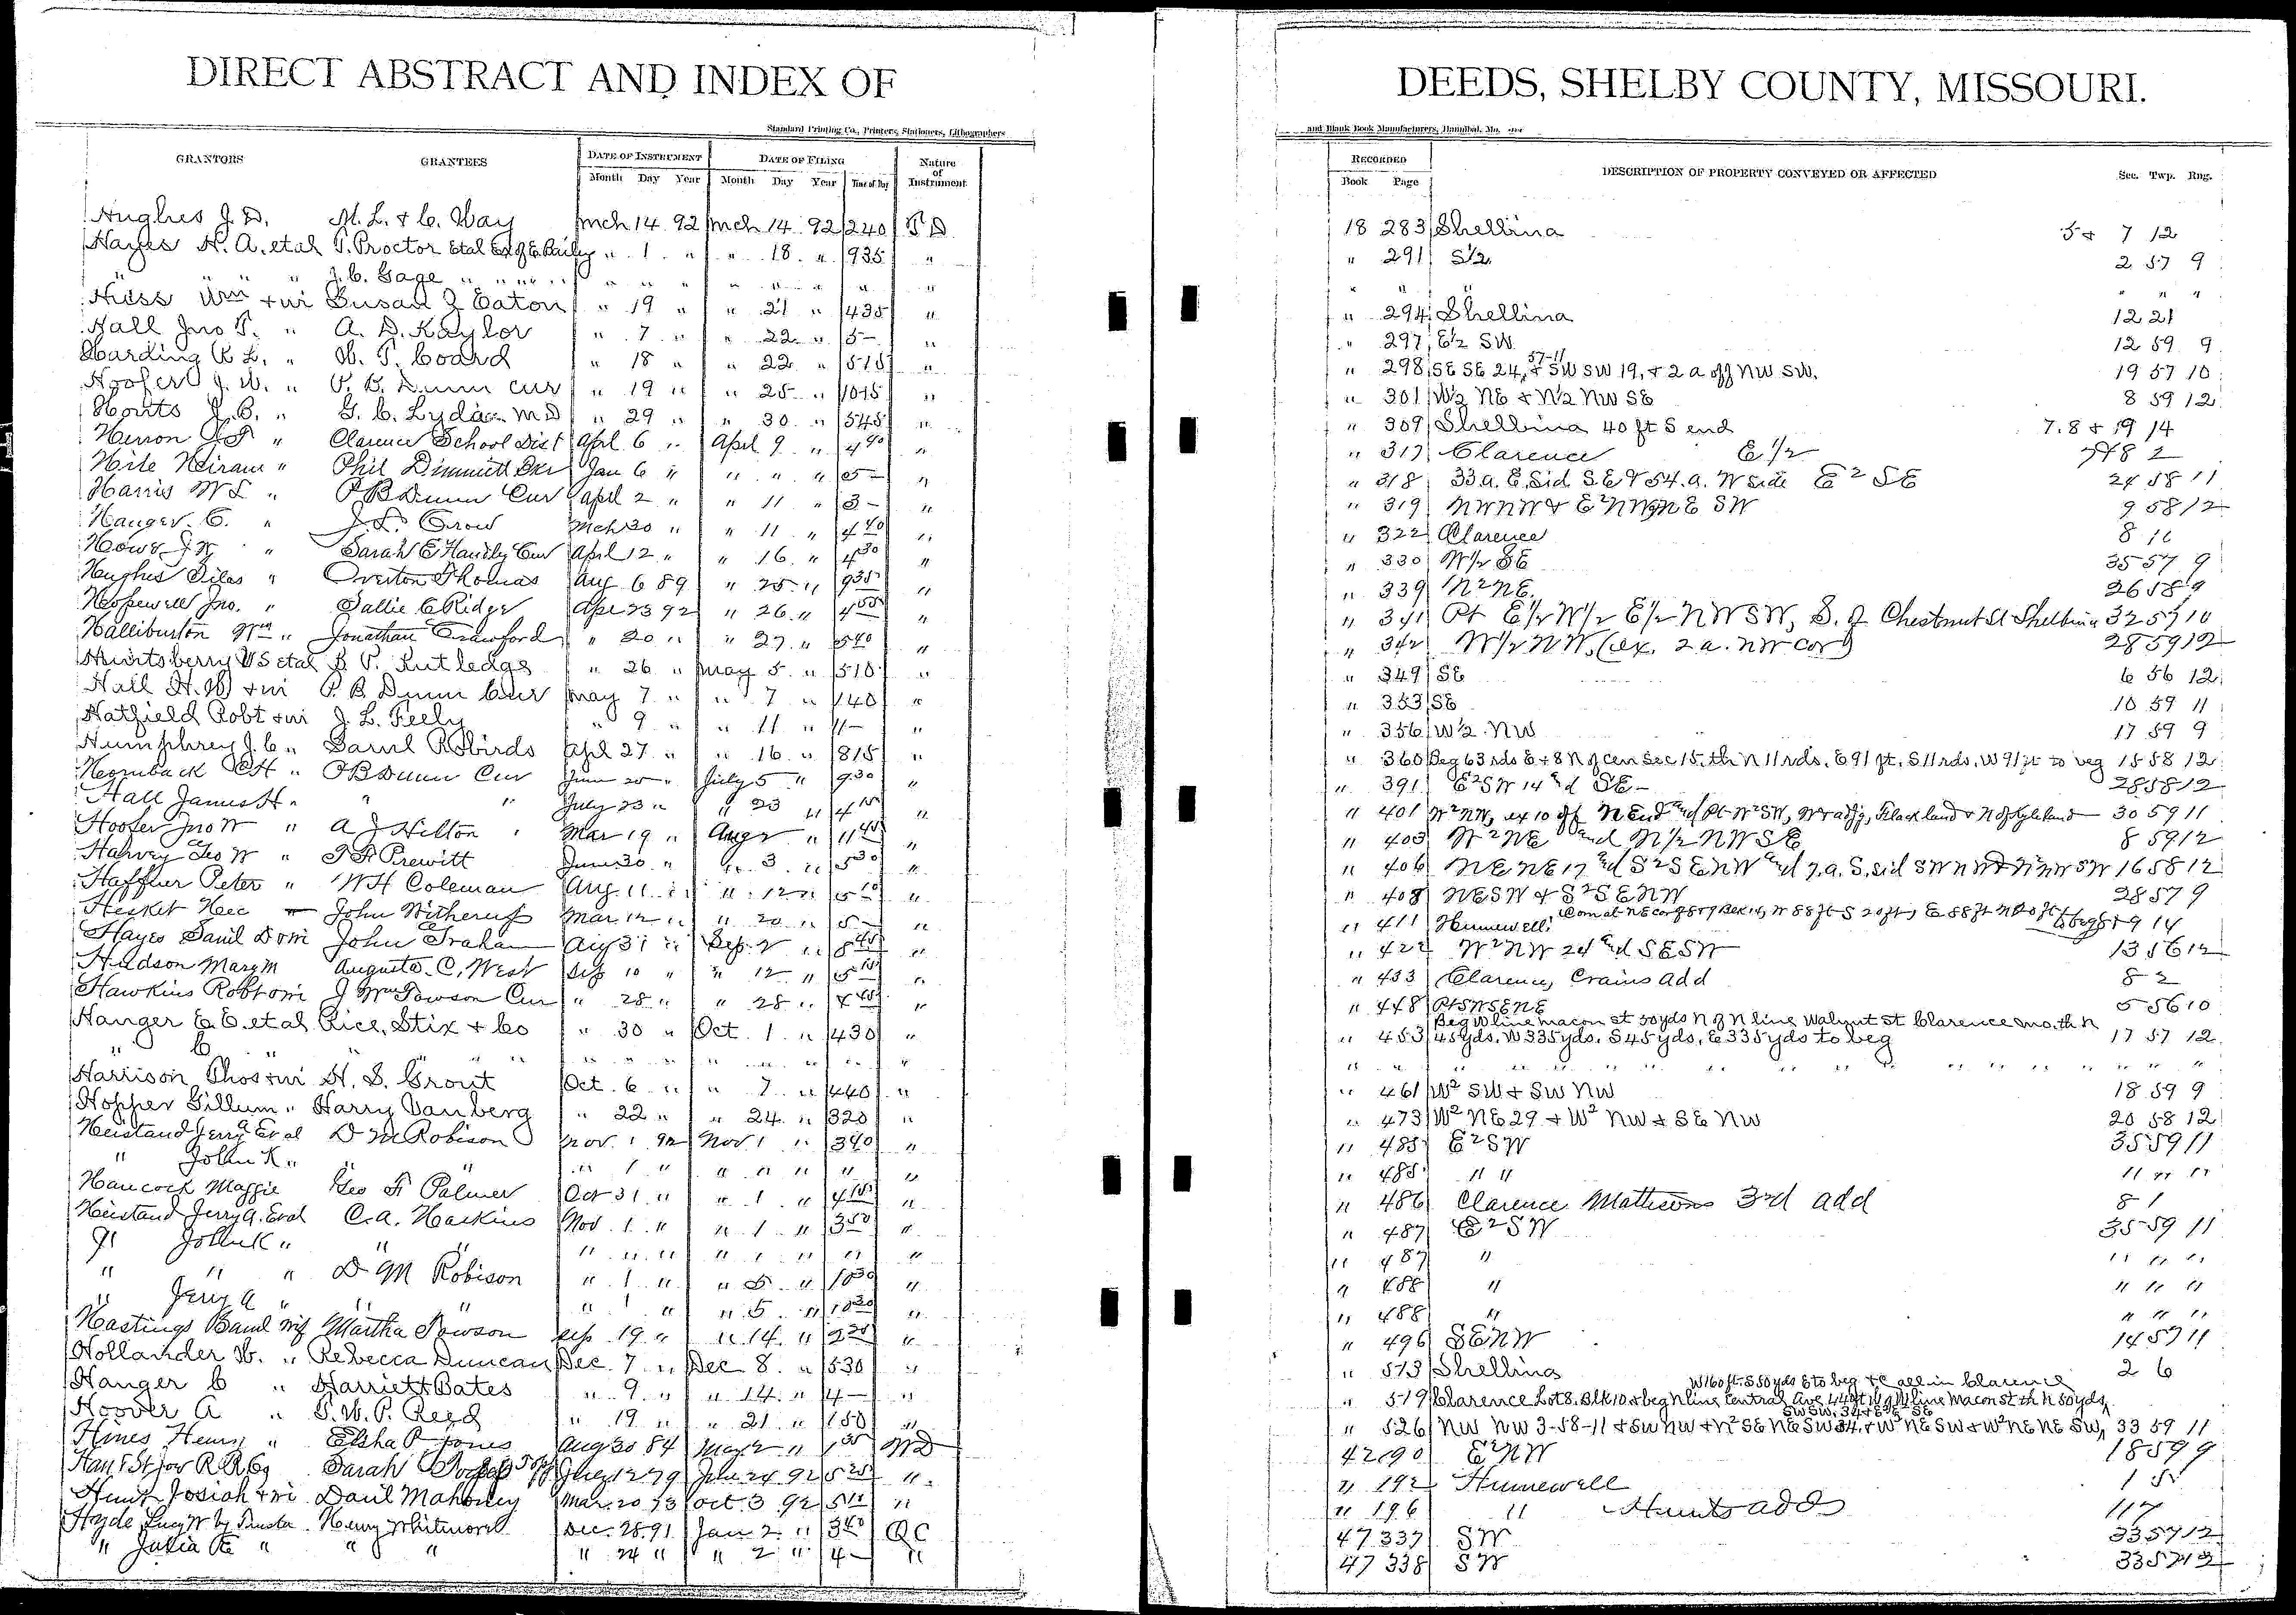 DIRECT ABSTRACT AND INDEX OF
Standard Printing Co., Printers, Stationers, Lithographers
GRANTORS GRANTEES DATE OF INSTRUMENT DATE OF FILING Nature of Instrument
Month Day Year Month Day Year Time of Day
Hughes J. D. M. L. & C. Way Mch 14 92 Mch 14 92 240 T D
Hayes H. A. etal T. Proctor Etal Ex of E. Baily " 1 " " 18 " 935 "
" " " J. C. Gage " " " " " " " " " " "
Hess Wm & wi Susan J Eaton " 19 " " 21 " 435 "
Hall Jno T. " A. D. Kaylor " 7 " " 22 " 5- "
Harding R L. " W. T. Coard " 18 " " 22 " 515 "
Hoofer J. W. " P. B. Dunn Cur " 19 " " 25 " 1015 "
Houts J. C. " G. C. Lyda M D " 29 " " 30 " 545 "
Herron " Clarence School Dist Apl 6 " April 9 " 4 40 "
Hile Hiram " Phil Dimmitt Jan 6 " " " " 5- "
Harris W S " P B Dunn Cur April 2 " " 11 " 3- "
Hanger C. " J. L. Crow Mch 30 " " 11 " 4 40 "
Howe J W " Sarah E Cur April 12 " " 16 " 4 30 "
Hughes Silas " Overton Thomas Aug 6 89 " 25 " 9 35 "
Hopewell Jno. " Sallie C Ridge Apr 23 92 " 26 " "
Halliburton Wm " Jonathan Crawford " 20 " " 27 " 5 40 "
Huntsberry W S etal B. P. Rutledge " 26 " May 5 " 510 "
Hall H. W & wi P. B Dunn Cur May 7 " " 7 " 140 "
Hatfield Robt & wi J. L. Feely " 9 " " 11 " 11- "
Humphrey J. C " Saml Robirds Apl 27 " " 16 " 815 "
Hornback " P B Dunn Cur June 25 " July 5 " 9 30 "
Hall James H " " " July 23 " " 23 " "
Hoofer Jno W " A J Hilton " Mar 19 " Aug 2 " "
Harvey Geo W " Prewitt June 30 " " 3 " 5 30 "
Haffner Peter " W H Coleman Aug 11 " " 12 " 5 10 "
Hesket Hec " John Witherup Mar 12 " " 20 " 5- "
Hayes Danl & wi John Graham Aug 31 " Sep 2 " "
Hudson Mary M Augusta C. West Sep 10 " " 12 " "
Hawkins Robt & wi J Wm Towson Cur " 28 " " 28 " "
Hanger C. C. etal Rice, Stix & Co " 30 " Oct. 1 " 430 "
" C " " " " " " " " " " " "
Harrison Thos & wi H. S. Grout Oct. 6 " " 7 " 440 "
Hopper Gillum " Harry Vanberg " 22 " " 24 " 320 "
Heistand Jerry A Et al D M Robison Nov. 1 92 Nov 1 " 340 "
" John K " " " " 1 " " " " " "
Hancock Maggie Geo F Palmer Oct 31 " " 1 " "
Heistand Jerry A. Et al C. A. Haskins Nov. 1 " " 1 " 3 50 "
" John K " " " " " " " 1 " " "
" " " D M Robison " 1 " " 5 " 10 30 "
" Jerry A " " " " 1 " " 5 " 10 30 "
Hastings Martha Towson Sep 19 " " 14 " "
Hollander W. " Rebecca Duncan Dec. 7 " Dec 8 " 530 "
Hanger C " Harriett Bates " 9 " " 14 " 4- "
Hoover A " T. W. P. Reed " 19 " " 21 " 150 "
Hines Henry " Elsha P Jones Aug 30 84 May 2 " W D
Han & St Joe R R Co Sarah 79 24 92 "
Hunt Josiah & wi Danl Mahoney Mar 20 73 Oct 3 92 "
Hyde Lucy W by Trustee Henry Whitmore Dec. 28 91 Jan 2 " 3 40 Q C
" Julia " " " " 24 " " 2 " 4- "
DEEDS, SHELBY COUNTY, MISSOURI.
and Blank Book Manufacturers, Hannibal, Mo.
RECORDED DESCRIPTION OF PROPERTY CONVEYED OR AFFECTED Sec. Twp. Rng.
Book Page
18 283 Shelbina 5 & 7 12
" 291 S½ 2 57 9
" " " " " "
" 294 Shelbina 12 21
" 297 E½ SW 12 59 9
" 298 SE SE 24, 57-11 & SW SW 19, & 2 a off NW SW. 19 57 10
" 301 W½ NE & N½ NW SE 8 59 12
" 309 Shelbina 40 ft S end 7. 8 & 19 14
" 317 Clarence E 1/2 7 & 8 2
" 318 33 a. E. Sid S E & 54. a. W side E² SE 24 58 11
" 319 NWNW & E²NW NE SW 9 58 12
" 322 Clarence 8 10
" 330 W½ SE 35 57 9
" 339 N²NE. 26 58 9
" 341 Pt E½ W½ E½ NW SW, S. of Chestnut St Shelbina 32 57 10
" 342 W½ NW, (ex. 2 a. NW cor) 28 59 12
" 349 SE 6 56 12
" 353 SE 10 59 11
" 356 W½ NW 17 59 9
" 360 Beg 63 rds E & 8 N of cen Sec 15, th N 11 rds, E 91 ft, S 11 rds, W 91 ft to beg 15 58 12
" 391 E²SW 14 and SE- 28 58 12
" 401 W²NW, ex 10 off N End and Pt W²SW, 30 59 11
" 403 W²NE and N½ NW SE 8 59 12
" 406 NE NE 17 and S²SE NW and 7. a. S. sid SW NW & N² NW SW 16 58 12
" 408 NE SW & S²SE NW 28 57 9
" 411 Hunnewell, Com at NE cor of 8 & 9 Blk 14, W 88 ft S 20 ft, E 88 ft N 20 ft to beg 8 & 9 14
" 422 W²NW 24 and SE SW 13 56 12
" 433 Clarence, Crains add 8 2
" 448 Pt SW SE NE 5 56 10
Beg W line Macon St 50 yds N of N line Walnut St Clarence Mo. th N
" 453 45 yds. W 335 yds. S 45 yds, E 335 yds to beg 17 57 12
" " " " " " " " " "
" 461 W² SW & SW NW 18 59 9
" 473 W² NE 29 & W² NW & SE NW 20 58 12
" 485 E²SW 35 59 11
" 485 " " " " "
" 486 Clarence Mathews 3rd add 8 1
" 487 E²SW 35 59 11
" 487 " " " "
" 488 " " " "
" 488 " " " "
" 496 SE NW 14 57 11
" 513 Shelbina 2 6
W 160 ft. S 50 yds E to beg & all in Clarence
" 519 Clarence Lot 8. Blk 10. & beg N line Central Ave 440 ft W of W line Macon St th N 50 yds,
SW SW, 34 & E² SE
" 526 NW NW 3-58-11 & SW NW & N² SE NE SW 34. & W² NE SW & W² NE NE SW, 33 59 11
42 190 E²NW 18 59 9
" 192 Hunnewell 1 5
" 196 " Hunts add 11 7
47 337 SW 33 57 12
47 338 SW 33 57 12